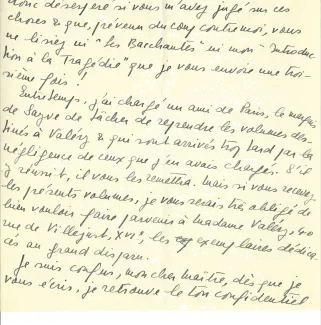 donc désespéré si vous m'avez jugé sur ces
choses & que, prévenu du coup contre moi, vous
ne lisiez ni "les Bacchantes" ni mon "Introduc
tion à la Tragédie" que je vous envoie une troi-
sième fois !
Entretemps, j'ai chargé un ami de Paris, le marquis
de Sayve de tâcher de reprendre les volumes des-
tinés à Valéry & qui sont arrivés trop tard par la
négligence de ceux que j'en avais chargés. S'il
y réussit, il vous les remettra. Mais si vous recevez
les présents volumes, je vous serais très obligé de
bien vouloir faire parvenir à Madame Valéry, 40
rue de Villejust, XVIᵉ, les exemplaires dédica
cés au grand disparu.
Je suis confus, mon cher Maître, dès que je
vous écris, je retrouve le ton confidentiel